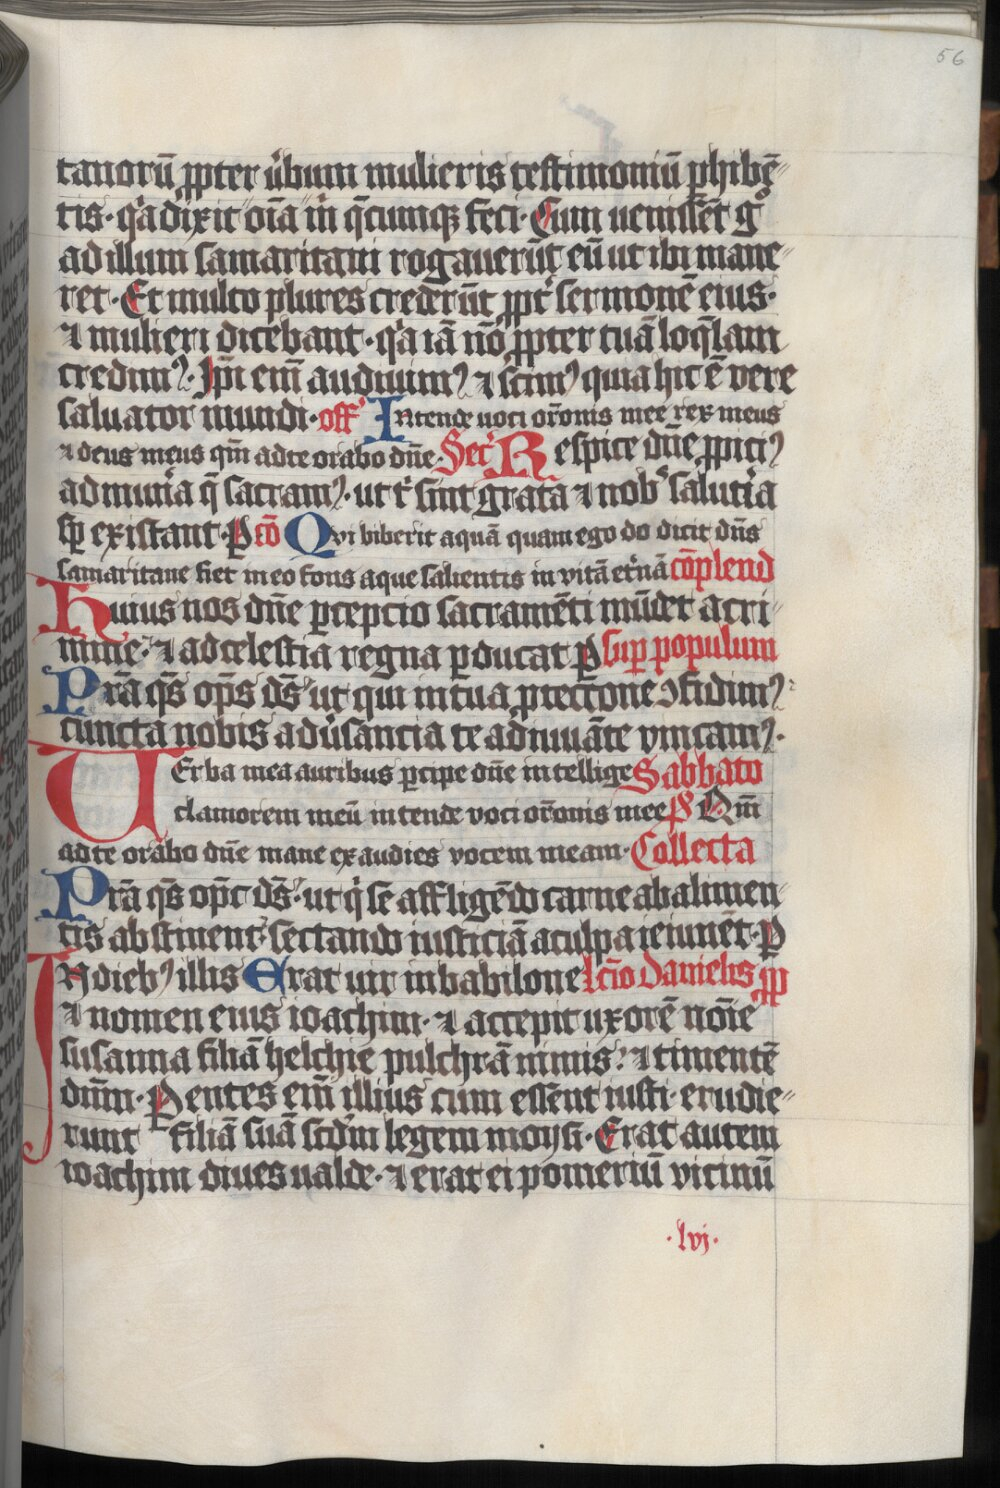 56
tanorū ꝓpter u̓bum mulieris testimoniū ꝑhibē-
tis · q̓a dixit oīa in̄ q̄cunqꝫ feci · Cum uenissēt gͦ
ad illum samaritani rogauerūt eū ut ibi mane-
ret · Et multo plures crederūt ꝓpt̓ sermonē eius ·
⁊ mulieri dicebant · q̓a iā nō ꝓpter tuā loq̄lam
credimꝰ · Ip̄i em̄ audiuimꝰ ⁊ scimꝰ quia hic ē vere
saluator mundi · off̓ Intende uoci or̄onis mee rex meus
⁊ deus meus qm̄ ad te orabo dn̄e · Sec̓ Respice dn̄e ꝓpiciꝰ
ad mun̓a q̄ sacramꝰ · ut t̓ sint grata ⁊ nob̓ salut̓ia
sꝑ existant · ꝑ cō Qvi biberit aquā quam ego do dicit dn̄s
samaritane fiet in eo fons aque salientis in vitā et̓nā cōplend
Huius nos dn̄e ꝑcepcio sacramēti mūdet a cri-
mine · ⁊ ad celestia regna ꝑducat ꝑ suꝑ populum
Prā qs̄ op̄s ds̄ ut qui in tua ꝓtectione ꝯfidimꝰ ·
cuncta nobis adu̓santia te adiuuāte vincamꝰ ·
Uerba mea auribus ꝑcipe dn̄e intellige Sabbato
clamorem meū intende voci or̄onis mee p̄s Qm̄
ad te orabo dn̄e mane exaudies vocem meam · Collecta
Prā qs̄ op̄c ds̄ · ut q̓ se affligēdo carne ab alimen-
tis abstinent · sectando iusticiā a culpa ieiunēt · ꝑ
In diebꝰ illis Erat uir in babilone lcīo Danielis ꝓp
⁊ nomen eius ioachim · ⁊ accepit uxorē noīe
susanna filiā helchie pulchrā nimis · ⁊ timentē
dūm · Pentes em̄ illius cum essent iusti · erudie-
runt filiā suā scd̄m legem moysi · Erat autem
ioachim diues ualde · ⁊ erat ei pomeriū vicinū
· lvj ·